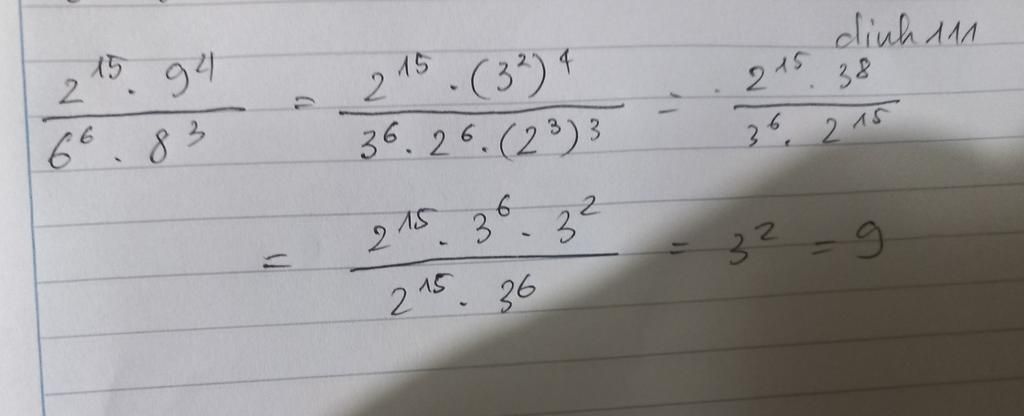 dinh 111
2^15 . 9^4 / 6^6 . 8^3 = 2^15 . (3^2)^4 / 3^6 . 2^6 . (2^3)^3 = 2^15 . 3^8 / 3^6 . 2^15
= 2^15 . 3^6 . 3^2 / 2^15 . 3^6 = 3^2 = 9